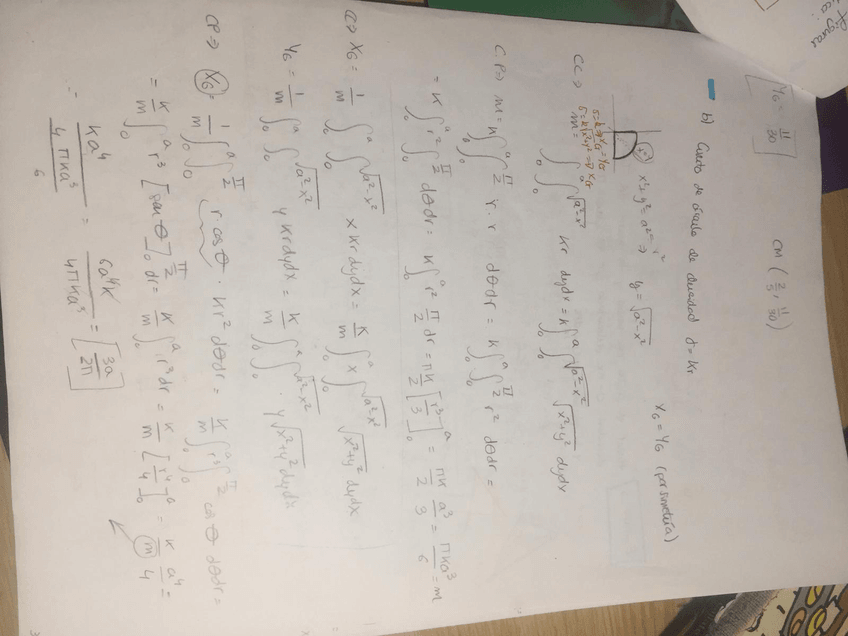 Y_G = 11/30
CM (2/5, 11/30)
b) Cuarto de círculo de densidad d = Kr
x² + y² = a² ⇒ y = √(a²-x²)
X_G = Y_G (por simetría)
CC ⇒ m = ∫₀^a ∫₀^√(a²-x²) Kr dydx = K ∫₀^a ∫₀^√(a²-x²) √(x²+y²) dydx
C.P ⇒ m = K ∫₀^a ∫₀^(π/2) r · r dθdr = K ∫₀^a ∫₀^(π/2) r² dθdr =
= K ∫₀^a r² ∫₀^(π/2) dθdr = K ∫₀^a r² π/2 dr = πK/2 [r³/3]₀^a = πK/2 a³/3 = πKa³/6 = m
CC ⇒ X_G = 1/m ∫₀^a ∫₀^√(a²-x²) x Kr dydx = K/m ∫₀^a x ∫₀^√(a²-x²) √(x²+y²) dydx
Y_G = 1/m ∫₀^a ∫₀^√(a²-x²) y Kr dydx = K/m ∫₀^a ∫₀^√(a²-x²) y √(x²+y²) dydx
CP ⇒ X_G = 1/m ∫₀^a ∫₀^(π/2) r cos θ · Kr² dθdr = K/m ∫₀^a r³ ∫₀^(π/2) cos θ dθdr =
= K/m ∫₀^a r³ [sen θ]₀^(π/2) dr = K/m ∫₀^a r³ dr = K/m [r⁴/4]₀^a = K/m a⁴/4 =
= Ka⁴ / (4 πKa³/6) = 6a⁴K / 4πKa³ = [3a/2π]